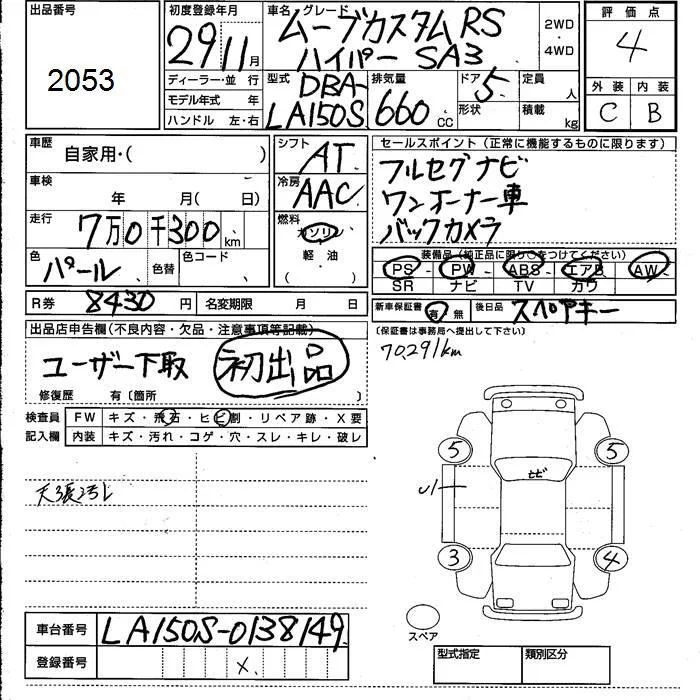 出品番号
2053
初度登録年月
29 11月
車名 グレード
ムーブカスタムRS
ハイパー SA3
2WD
・
4WD
評価点
4
外装 内装
C B
ディーラー・並 行
モデル年式 年
ハンドル 左・右
型式
DBA-
LA150S
排気量
660cc
ドア
5
形状
定員
人
積載
kg
車歴
自家用・( )
車検
年 月( 日)
走行
7万0千300km
色
パール
色替
色コード
シフト
AT
冷房
AAC
燃料
ガソリン
軽・油
( )
セールスポイント(正常に機能するものに限ります)
フルセグナビ
ワンオーナー車
バックカメラ
装備品(純正品に限り○をつけてください)
PS - PW - ABS - エアB AW
SR ナビ TV カワ
R券 8430円 名変期限 月 日
新車保証書 有・無 後日品 スペアキー
(保証書は事務局へ提出して下さい)
出品店申告欄(不良内容・欠品・注意事項等記載)
ユーザー下取 初出品
修復歴 有〔箇所 〕
70291km
検査員 FW キズ・飛石・ヒビ割・リペア跡・X要
記入欄 内装 キズ・汚れ・コゲ・穴・スレ・キレ・破レ
天張汚レ
5 5
ヒビ
U1
3 4
スペア
車台番号 LA150S-0138149
登録番号 X
型式指定 類別区分